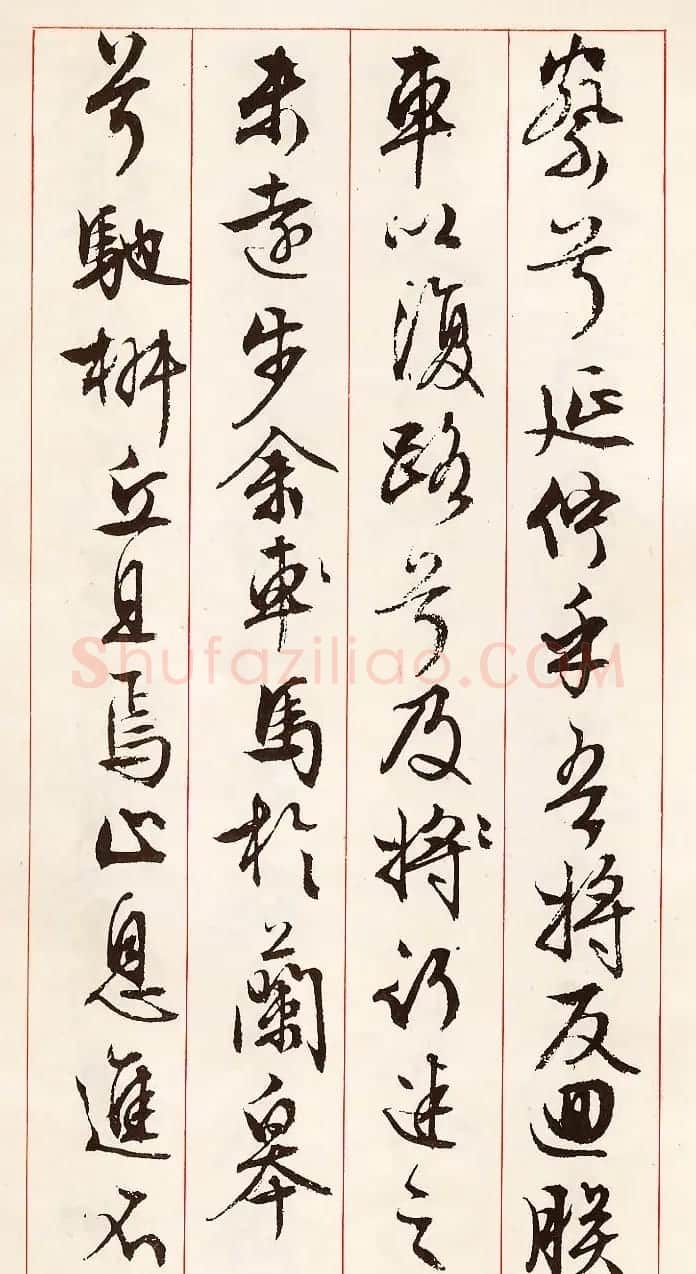 察兮延佇乎吾將反迴朕
車以復路兮及將行迷之
未遠步余車馬於蘭皋
兮馳椒丘且焉止息進不
Shufaziliao.COM